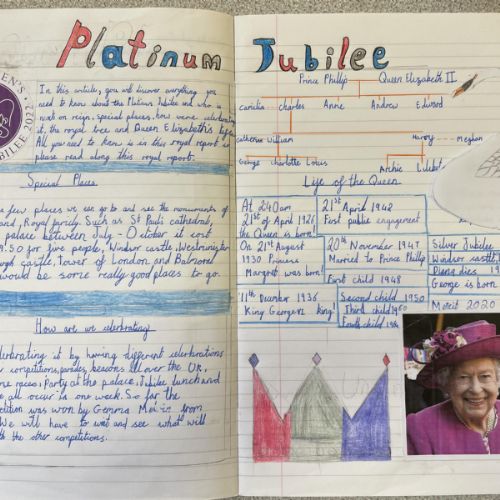 Platinum Jubilee
EEN'S
JUBILEE 2022
In this article, you will discover everything you
need to know about the Platinum Jubilee and who is
next on reign, special places, how we're celebrating
it, the royal tree and Queen Elizabeth's life
All you need to know is in this royal report so
please read along this royal report.
Special Places
a few places we can go to and see the monuments of
and, Royal family. Such as St Pauls cathedral,
palace between July - October it cost
9.50 for five people, Windsor castle, Westminster
castle, Tower of London and Balmoral
would be some really good places to go.
How are we celebrating
elebrating it by having different celebrations
competitions, parades, beacons all over the UK,
races, Party at the palace, Jubilee lunch and
all occur in one week. So far the
petition was won by Gemma from
We will have to wait and see what will
the other competitions.
Prince Phillip Queen Elizabeth II
camilia charles Anne Andrew Edward
catherine William Harry Meghan
George charlotte Louis Archie
Life of the Queen
At 2:40am
21st of April 1926
the Queen is born!
21st April 1942
First public engagement
On 21st August
1930 Princess
Margret was born!
20th November 1947
Married to Prince Phillip
First child 1948
Silver Jubilee
Windsor castle
Diana dies
George is born
11th December 1936
King George king!
Second child 1950
Third child 1960
Fourth child
Merit 2020